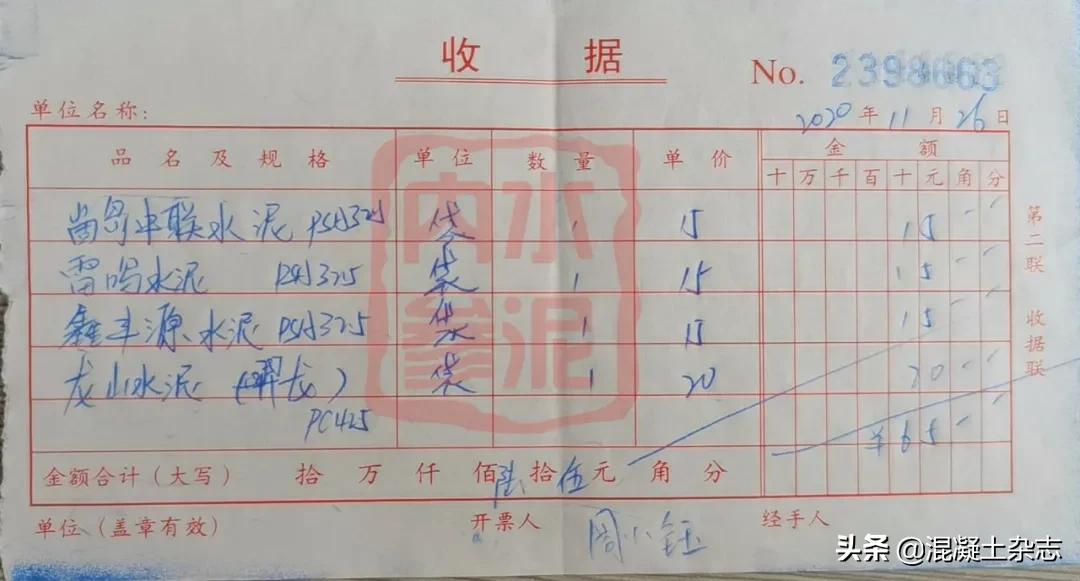 收 据
No. 2398663
单位名称:
2020 年 11 月 26 日
品名及规格 单位 数量 单价 金额
十 万 千 百 十 元 角 分
中联水泥 PSA325 袋 1 15 15--
雷鸣水泥 PSA325 袋 1 15 15--
鑫丰源水泥 PSA325 袋 1 15 15--
龙山水泥 (翟龙) 袋 1 20 20--
PC425 ¥65--
金额合计(大写) 拾 万 仟 佰 陆 拾 伍 元 角 分
单位(盖章有效) 开票人 周小钰 经手人
第二联 收据联
水泥内参
头条 @混凝土杂志